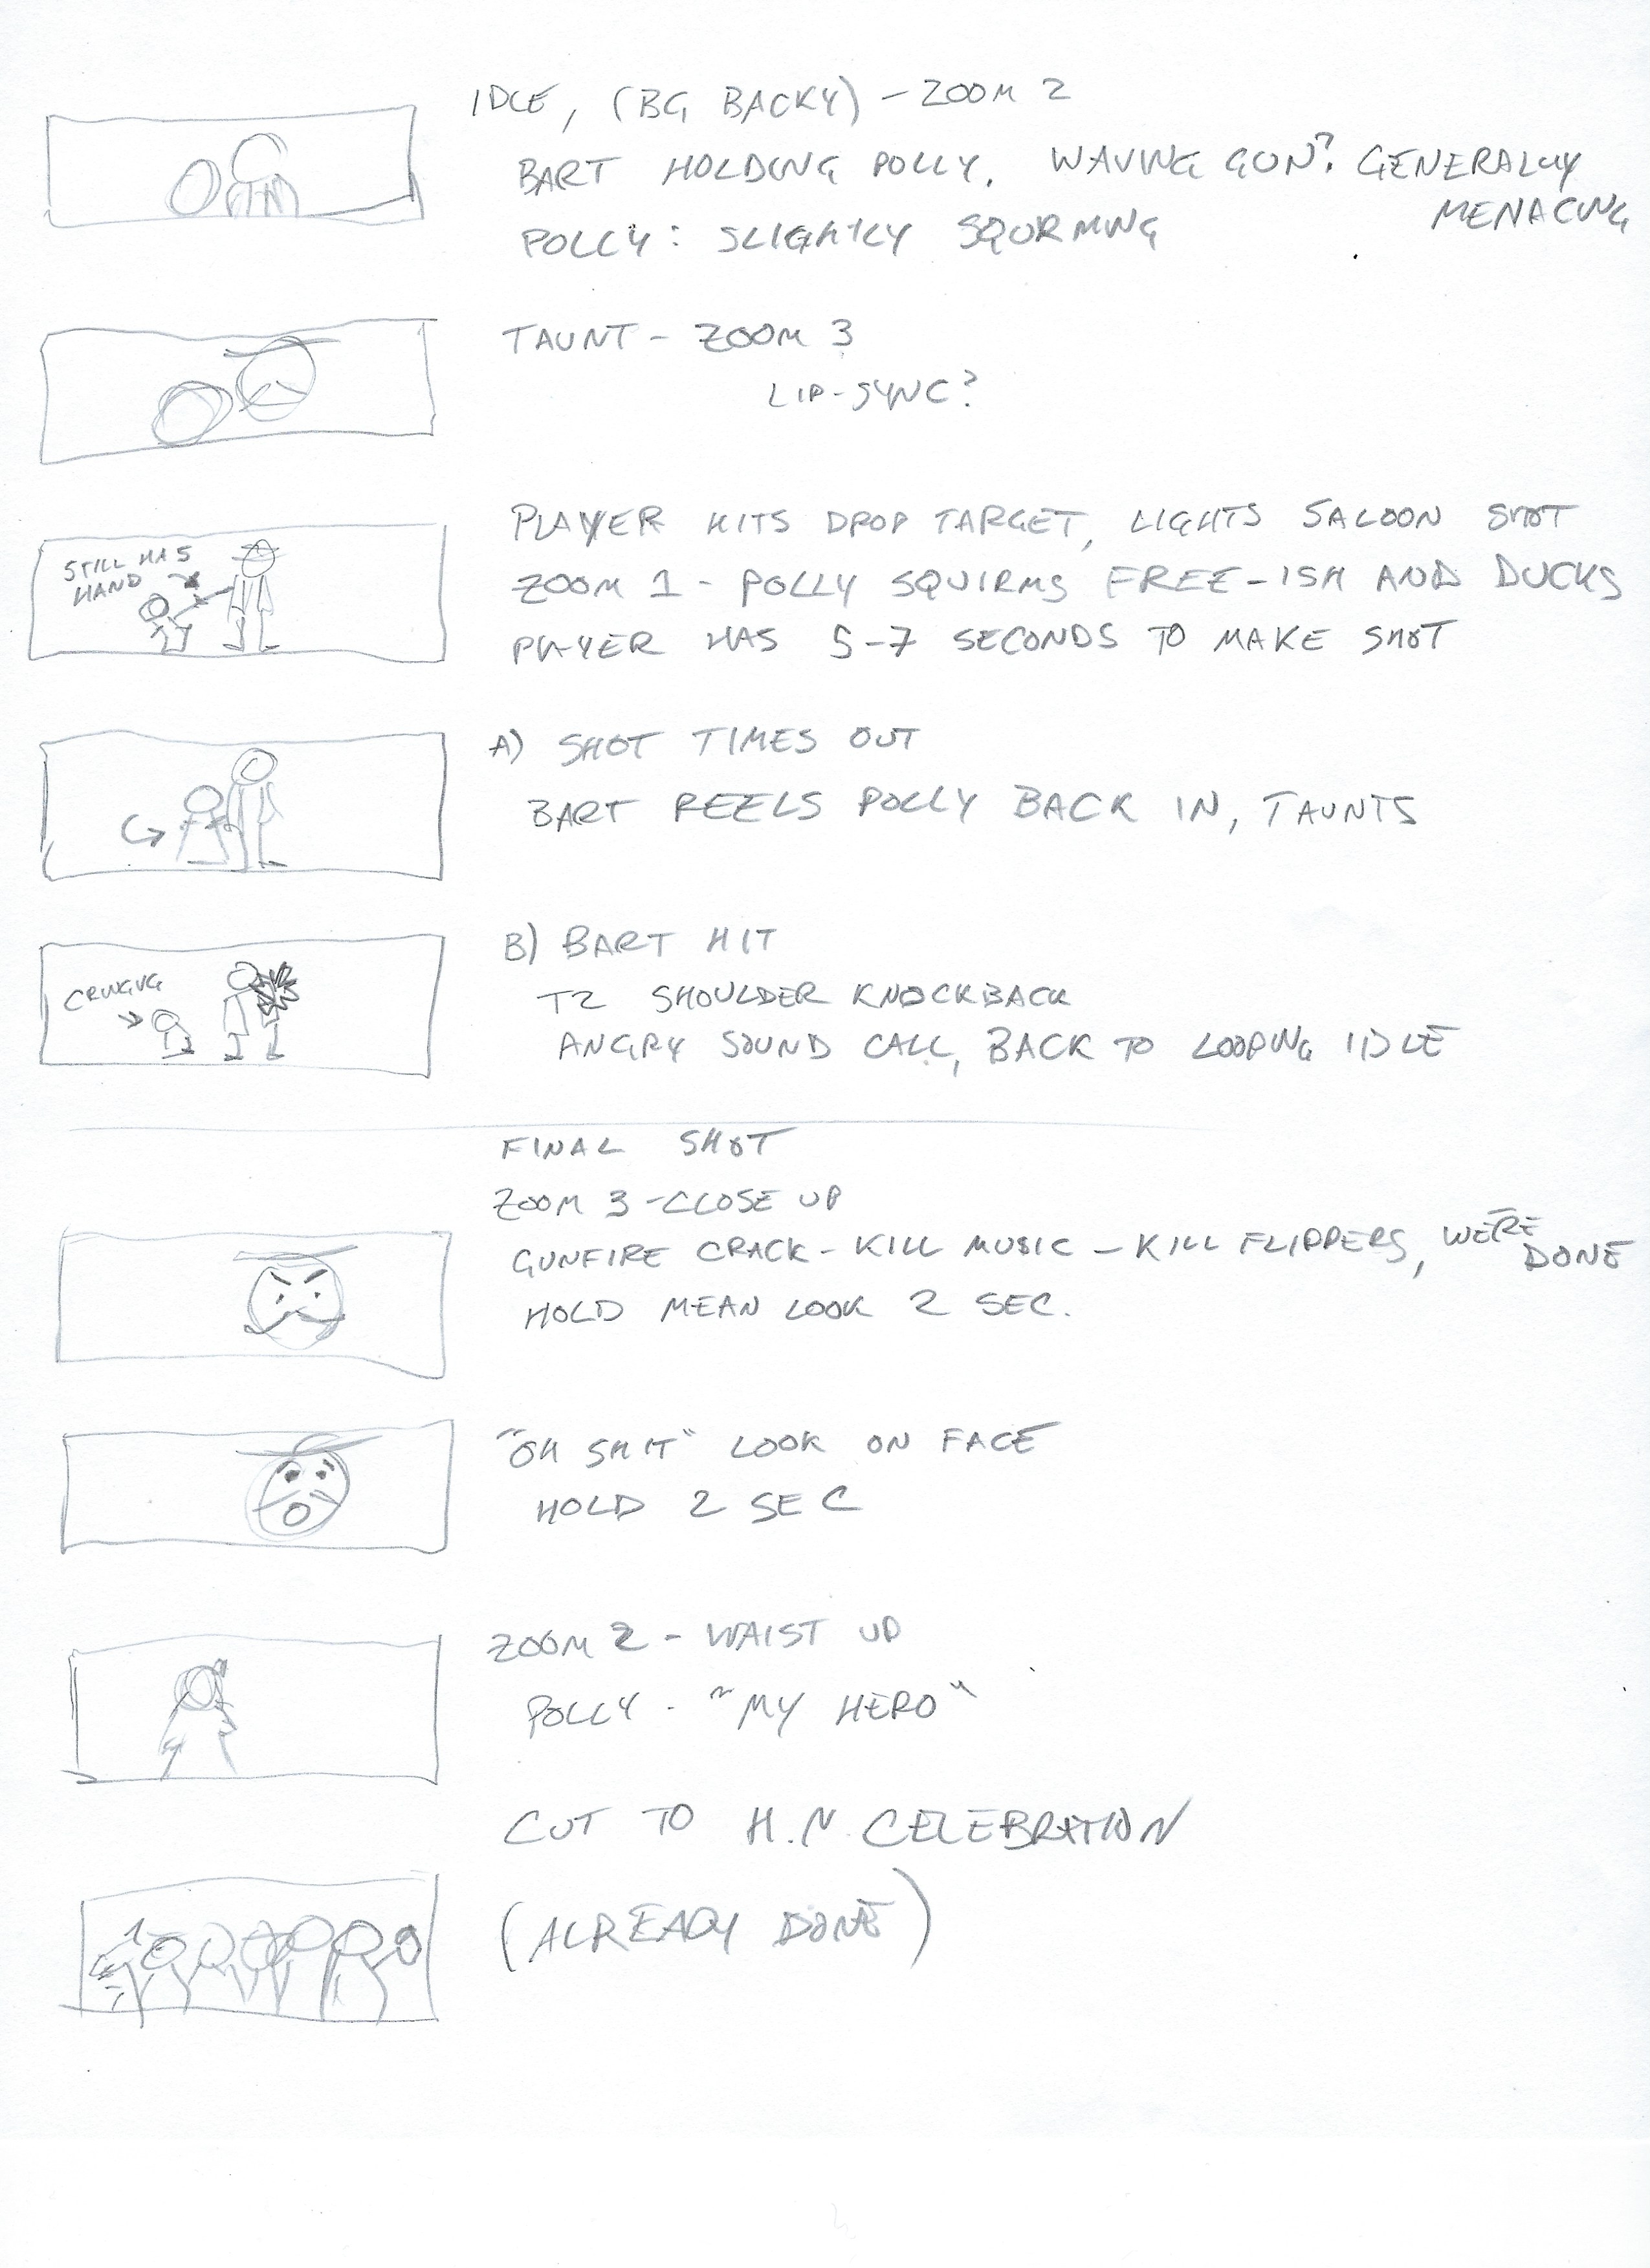 IDLE, (BG BACKY) - ZOOM 2
BART HOLDING POLLY. WAVING GUN? GENERALLY
MENACING
POLLY: SLIGHTLY SQURMING
TAUNT - ZOOM 3
LIP-SYNC?
PLAYER HITS DROP TARGET, LIGHTS SALOON SHOT
STILL HAS
HAND
ZOOM 1 - POLLY SQUIRMS FREE-ISH AND DUCKS
PLAYER HAS 5-7 SECONDS TO MAKE SHOT
A) SHOT TIMES OUT
BART REELS POLLY BACK IN, TAUNTS
B) BART HIT
CRINGING
T2 SHOULDER KNOCKBACK
ANGRY SOUND CALL, BACK TO LOOPING IDLE
FINAL SHOT
ZOOM 3 - CLOSE UP
GUNFIRE CRACK - KILL MUSIC - KILL FLIPPERS, WE'RE
DONE
HOLD MEAN LOOK 2 SEC.
"OH SHIT" LOOK ON FACE
HOLD 2 SEC
ZOOM 2 - WAIST UP
POLLY - "MY HERO"
CUT TO H.N. CELEBRATION
(ALREADY DONE)